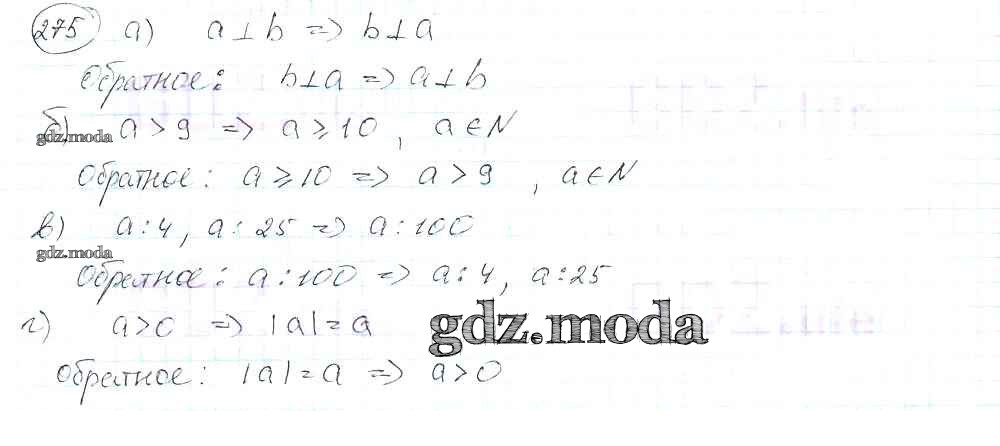 275 а) a ⊥ b => b ⊥ a
Обратное: b ⊥ a => a ⊥ b
б) a > 9 => a ⩾ 10, a ∈ N
gdz.moda
Обратное: a ⩾ 10 => a > 9, a ∈ N
в) a : 4, a : 25 => a : 100
gdz.moda
Обратное: a : 100 => a : 4, a : 25
г) a > 0 => |a| = a
gdz.moda
Обратное: |a| = a => a > 0